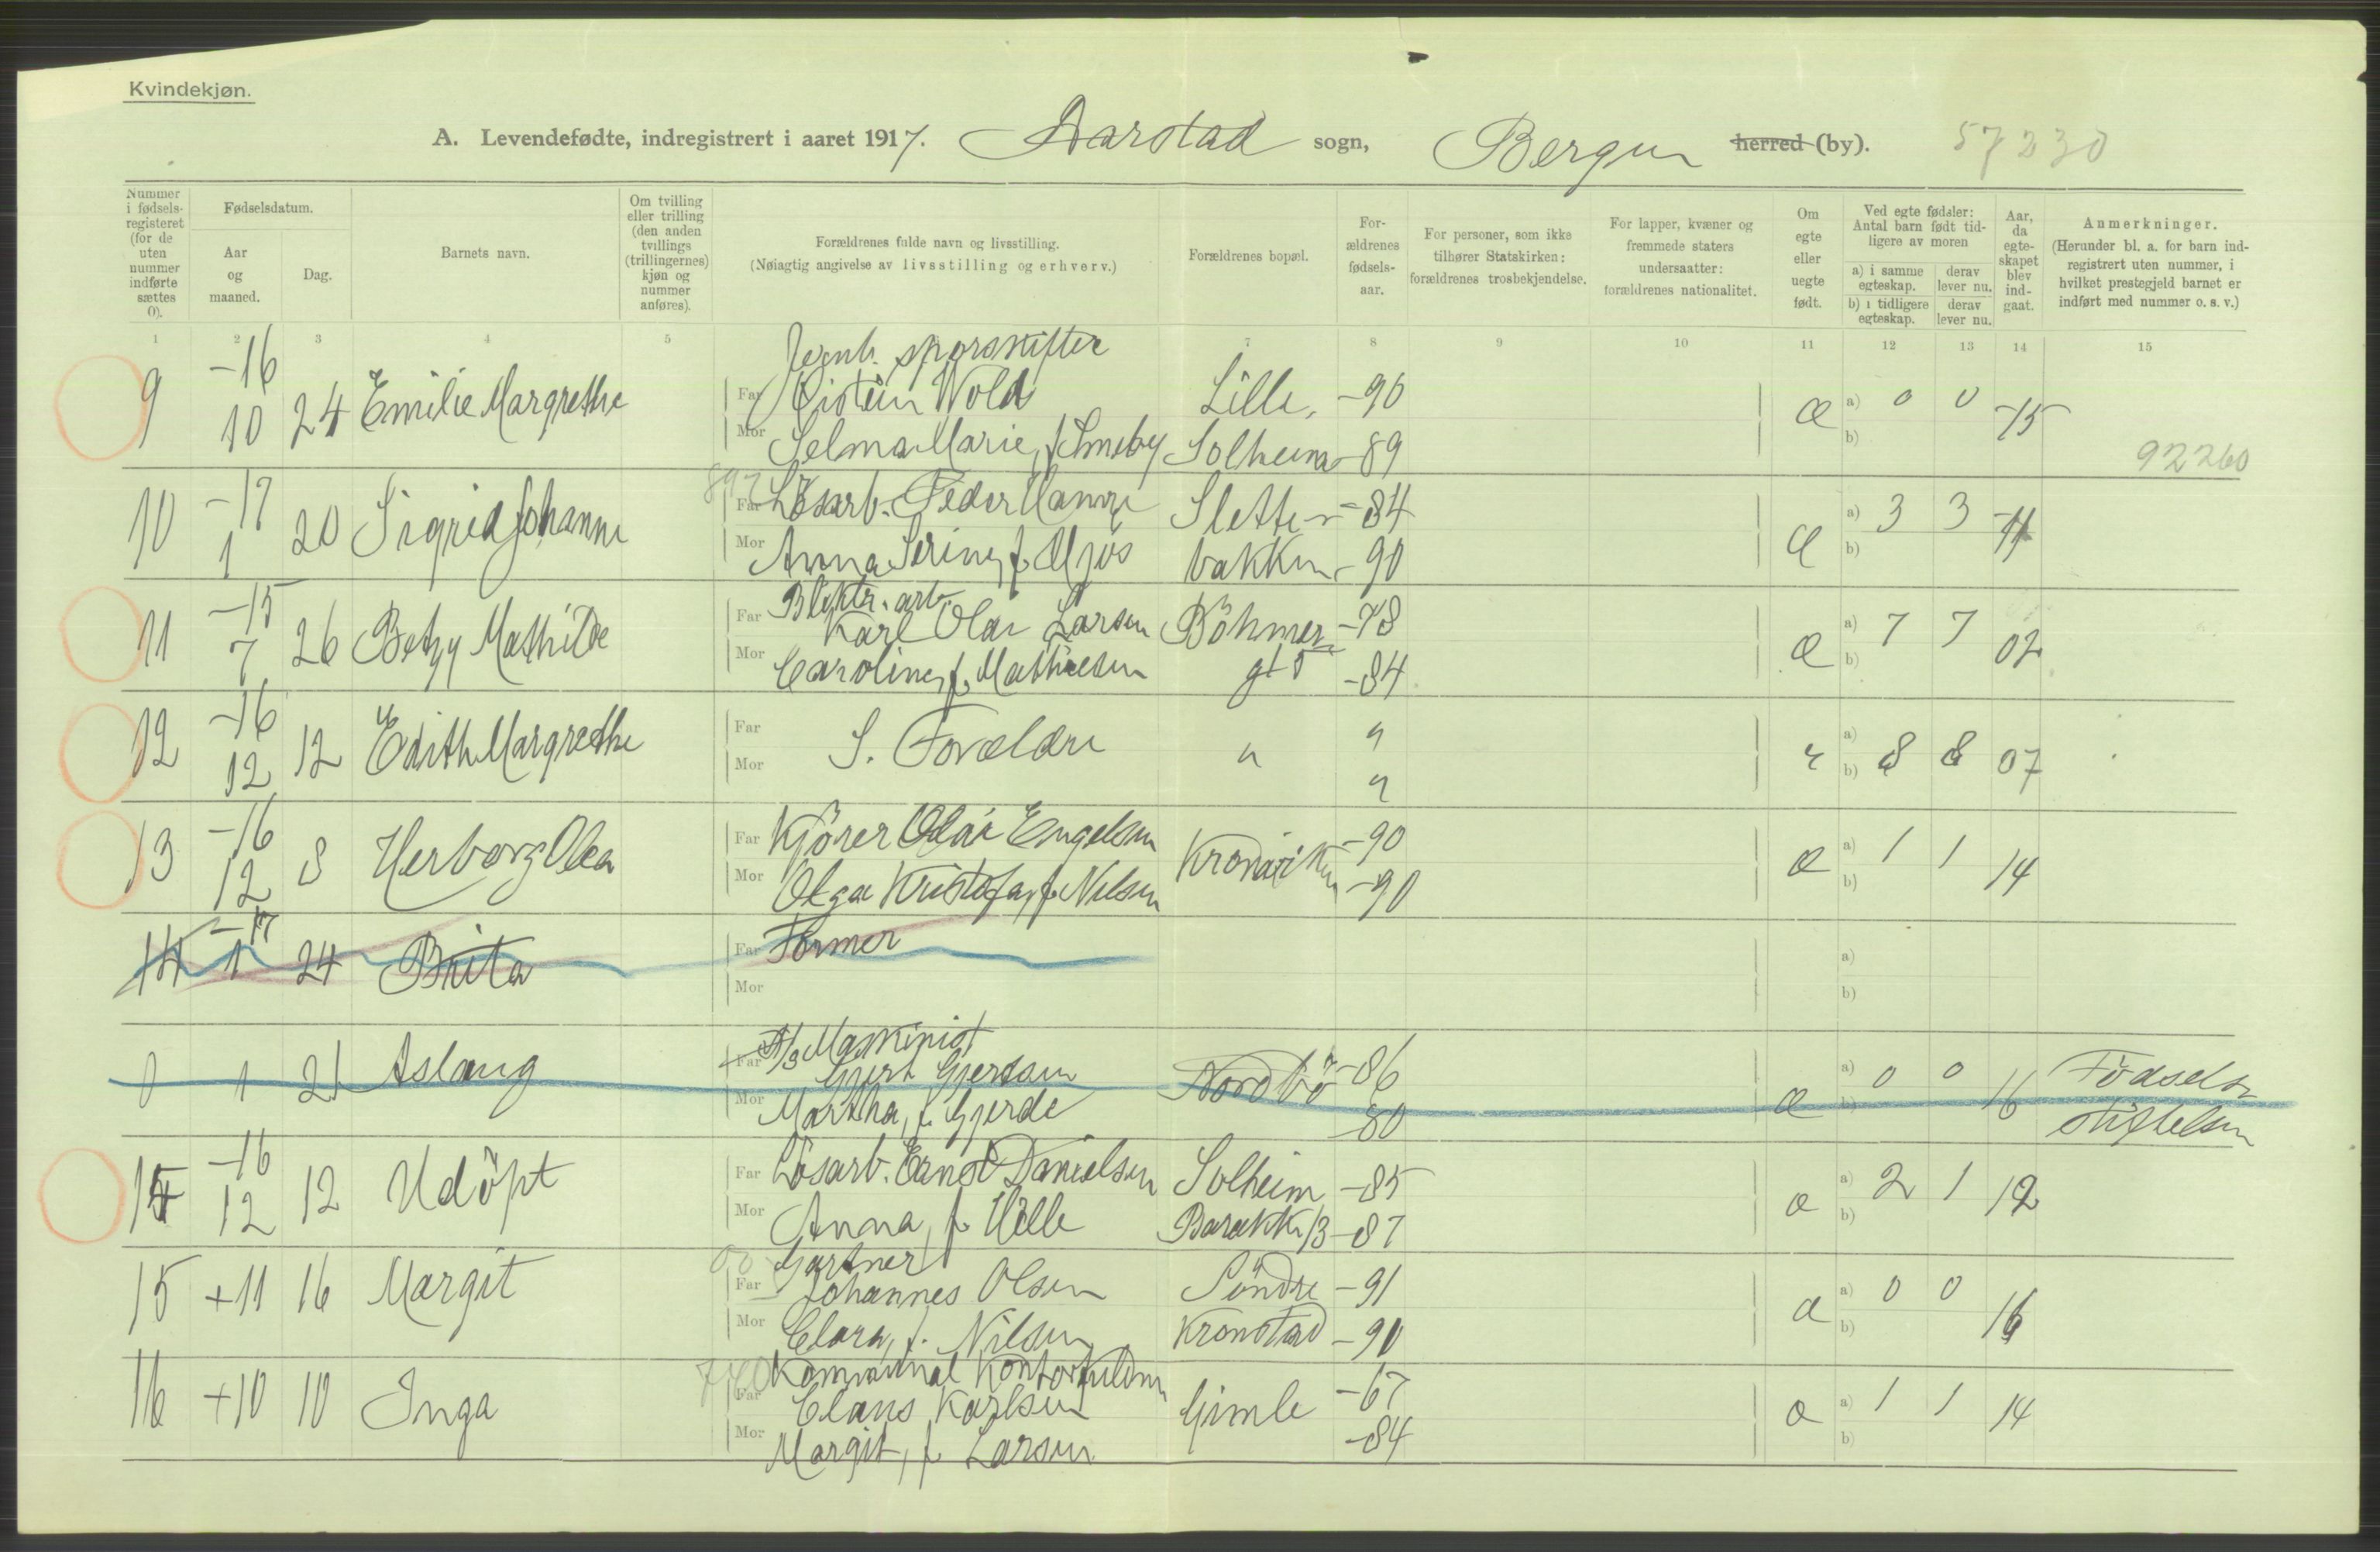 Kvindekjøn.
A. Levendefødte, indregistrert i aaret 1917. Aarstad sogn, Bergen herred (by). 57230
Nummer i fødsels-registeret (for de uten nummer indførte sættes 0).
Fødselsdatum.
Aar og maaned.
Dag.
Barnets navn.
Om tvilling eller trilling (den anden tvillings (trillingernes) kjøn og nummer anføres).
Forældrenes fulde navn og livsstilling.
(Nøiagtig angivelse av livsstilling og erhverv.)
Forældrenes bopæl.
For-ældrenes fødsels-aar.
For personer, som ikke tilhører Statskirken: forældrenes trosbekjendelse.
For lapper, kvæner og fremmede staters undersaatter: forældrenes nationalitet.
Om egte eller uegte født.
Ved egte fødsler: Antal barn født tid-ligere av moren
a) i samme egteskap. derav lever nu.
b) i tidligere egteskap. derav lever nu.
Aar, da egte-skapet blev ind-gaat.
Anmerkninger.
(Herunder bl. a. for barn ind-registrert uten nummer, i hvilket prestegjeld barnet er indført med nummer o. s. v.)
1 2 3 4 5 7 8 9 10 11 12 13 14 15
Jernb. sporskifter
9 -16 10 24 Emilie Margrethe Far Kistein Wold Lille -90 æ a) 0 0 -15
Mor Selma Marie, f. Smeby Solheim -89 b) 92260
10 -17 1 20 Sigrid Johanne Far Løsarb. Peder Hamre Slette- -84 æ a) 3 3 -11
Mor Anna Serine, f. Mjøs bakken -90 b)
11 -15 7 26 Betzy Mathilde Far Blektr. arb. Karl Olai Larsen Böhmer -78 æ a) 7 7 02
Mor Caroline, f. Mathiesen gt 5 -84 b)
12 -16 12 12 Edith Margrethe Far S. Forældre " " a) 8 8 07
Mor " b)
13 -16 12 8 Herborg Olea Far Kjörer Olai Engelsen Kronviken -90 æ a) 1 1 14
Mor Olga Kristofa, f. Nilsen -90 b)
14 -17 1 24 Brita Far Former a)
Mor b)
Maskinist
0 1 21 Aslaug Far Gjert Gjertsen Nordbö -86 æ a) 0 0 16 Födsels-
Mor Martha, f. Gjerde -80 b) stiftelsen
14 -16 12 12 Udöpt Far Lösarb. Ernst Danielsen Solheim -85 æ a) 2 1 12
Mor Anna, f. Hille Barakk 13 -87 b)
Gartner
15 +11 16 Margit Far Johannes Olsen Söndre -91 æ a) 0 0 16
Mor Clara, f. Nilsen Kronstad -90 b)
740 Kommunal Kontorfuldm
16 +10 10 Inga Far Claus Karlsen Gimle -67 æ a) 1 1 14
Mor Margit, f. Larsen -84 b)